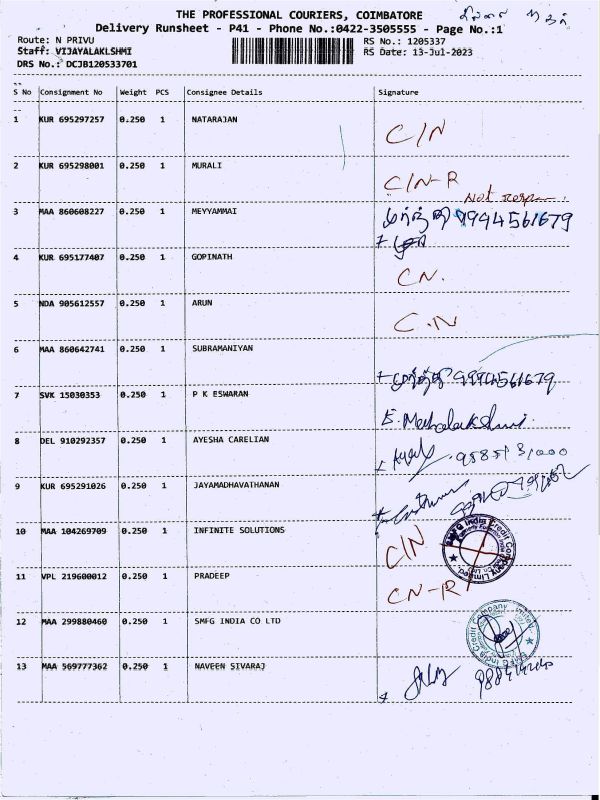 THE PROFESSIONAL COURIERS, COIMBATORE
Delivery Runsheet - P41 - Phone No.:0422-3505555 - Page No.:1
Route: N PRIVU
RS No.: 1205337
Staff: VIJAYALAKLSHMI
RS Date: 13-Jul-2023
DRS No.: DCJB120533701
S No Consignment No Weight PCS Consignee Details Signature
1 KUR 695297257 0.250 1 NATARAJAN C/N
2 KUR 695298001 0.250 1 MURALI C/N-R
Not
3 MAA 860608227 0.250 1 MEYYAMMAI 9944561679
4 KUR 695177407 0.250 1 GOPINATH CN.
5 NDA 905612557 0.250 1 ARUN C.N
6 MAA 860642741 0.250 1 SUBRAMANIYAN 9944561679
7 SVK 15030353 0.250 1 P K ESWARAN
8 DEL 910292357 0.250 1 AYESHA CARELIAN
9 KUR 695291026 0.250 1 JAYAMADHAVATHANAN
10 MAA 104269709 0.250 1 INFINITE SOLUTIONS C/N
11 VPL 219600012 0.250 1 PRADEEP CN-R
12 MAA 299880460 0.250 1 SMFG INDIA CO LTD
13 MAA 569777362 0.250 1 NAVEEN SIVARAJ